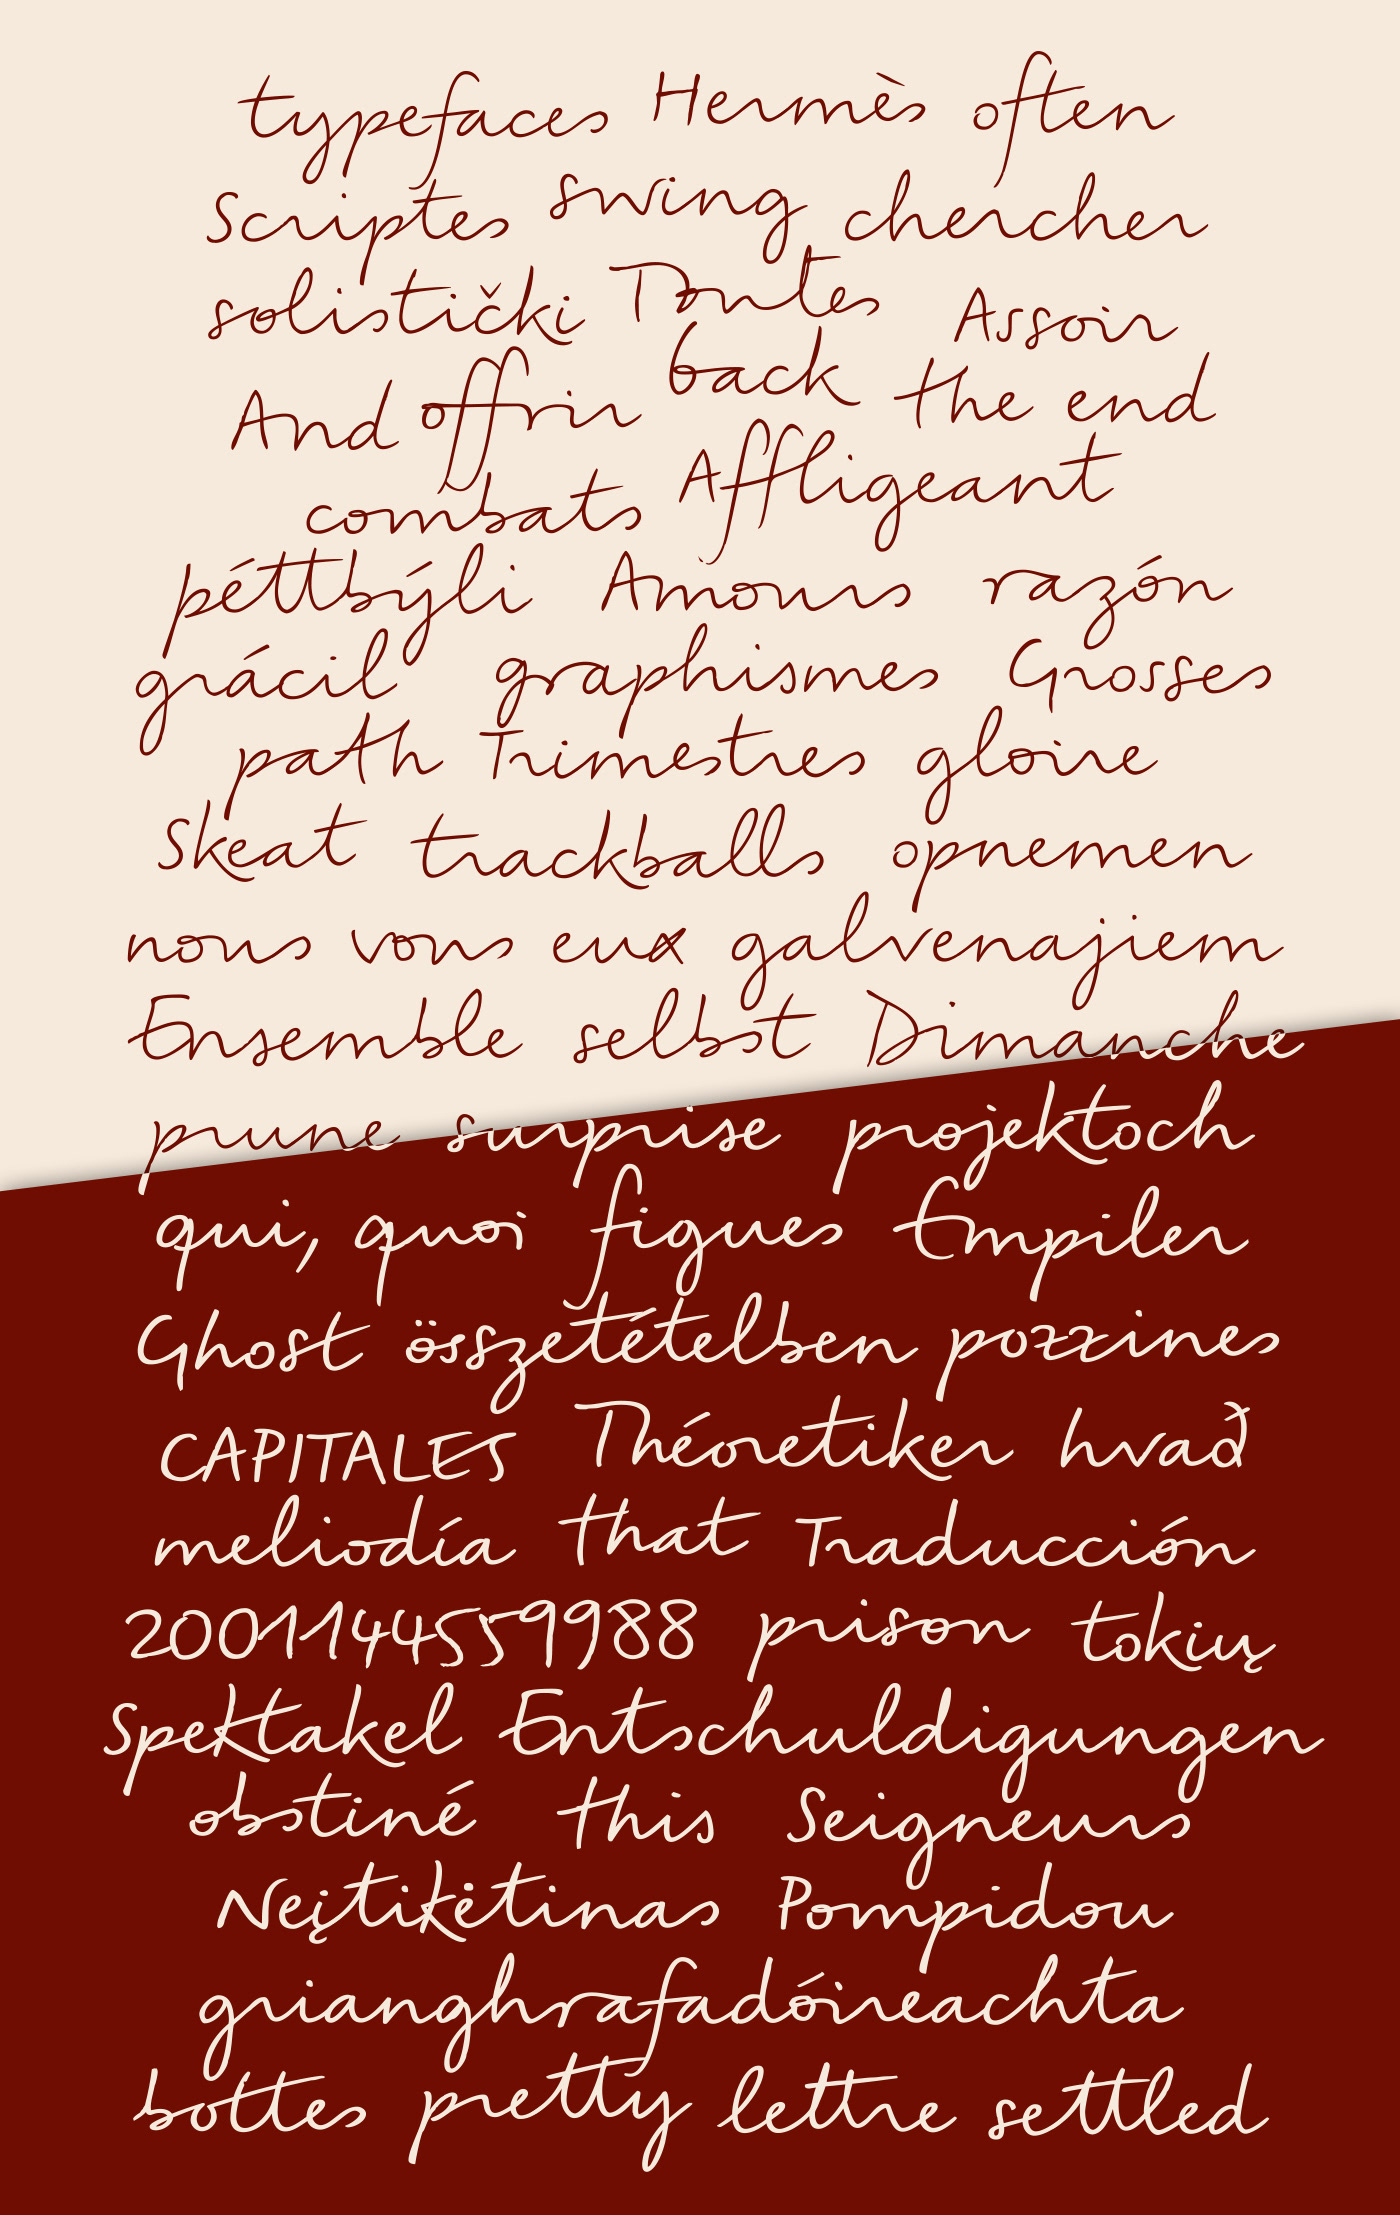 typefaces Hermès often
Scriptes swing chercher
solistički Toutes Assoir
And offrir back the end
combats Affligeant
péttbýli Amours razón
grácil graphismes Grosses
path Trimestres gloire
Skeat trackballs opnemen
nous vous eux galvenajiem
Ensemble selbst Dimanche
prune surprise projektoch
qui, quoi figues Empiler
Ghost összetételben pozzines
CAPITALES Théoretiker hvað
meliodía that Traducción
2001144559988 prison tokių
Spektakel Entschuldigungen
obstiné this Seigneurs
Neįtikėtinas Pompidou
grianghrafadóireachta
bottes pretty lettre settled